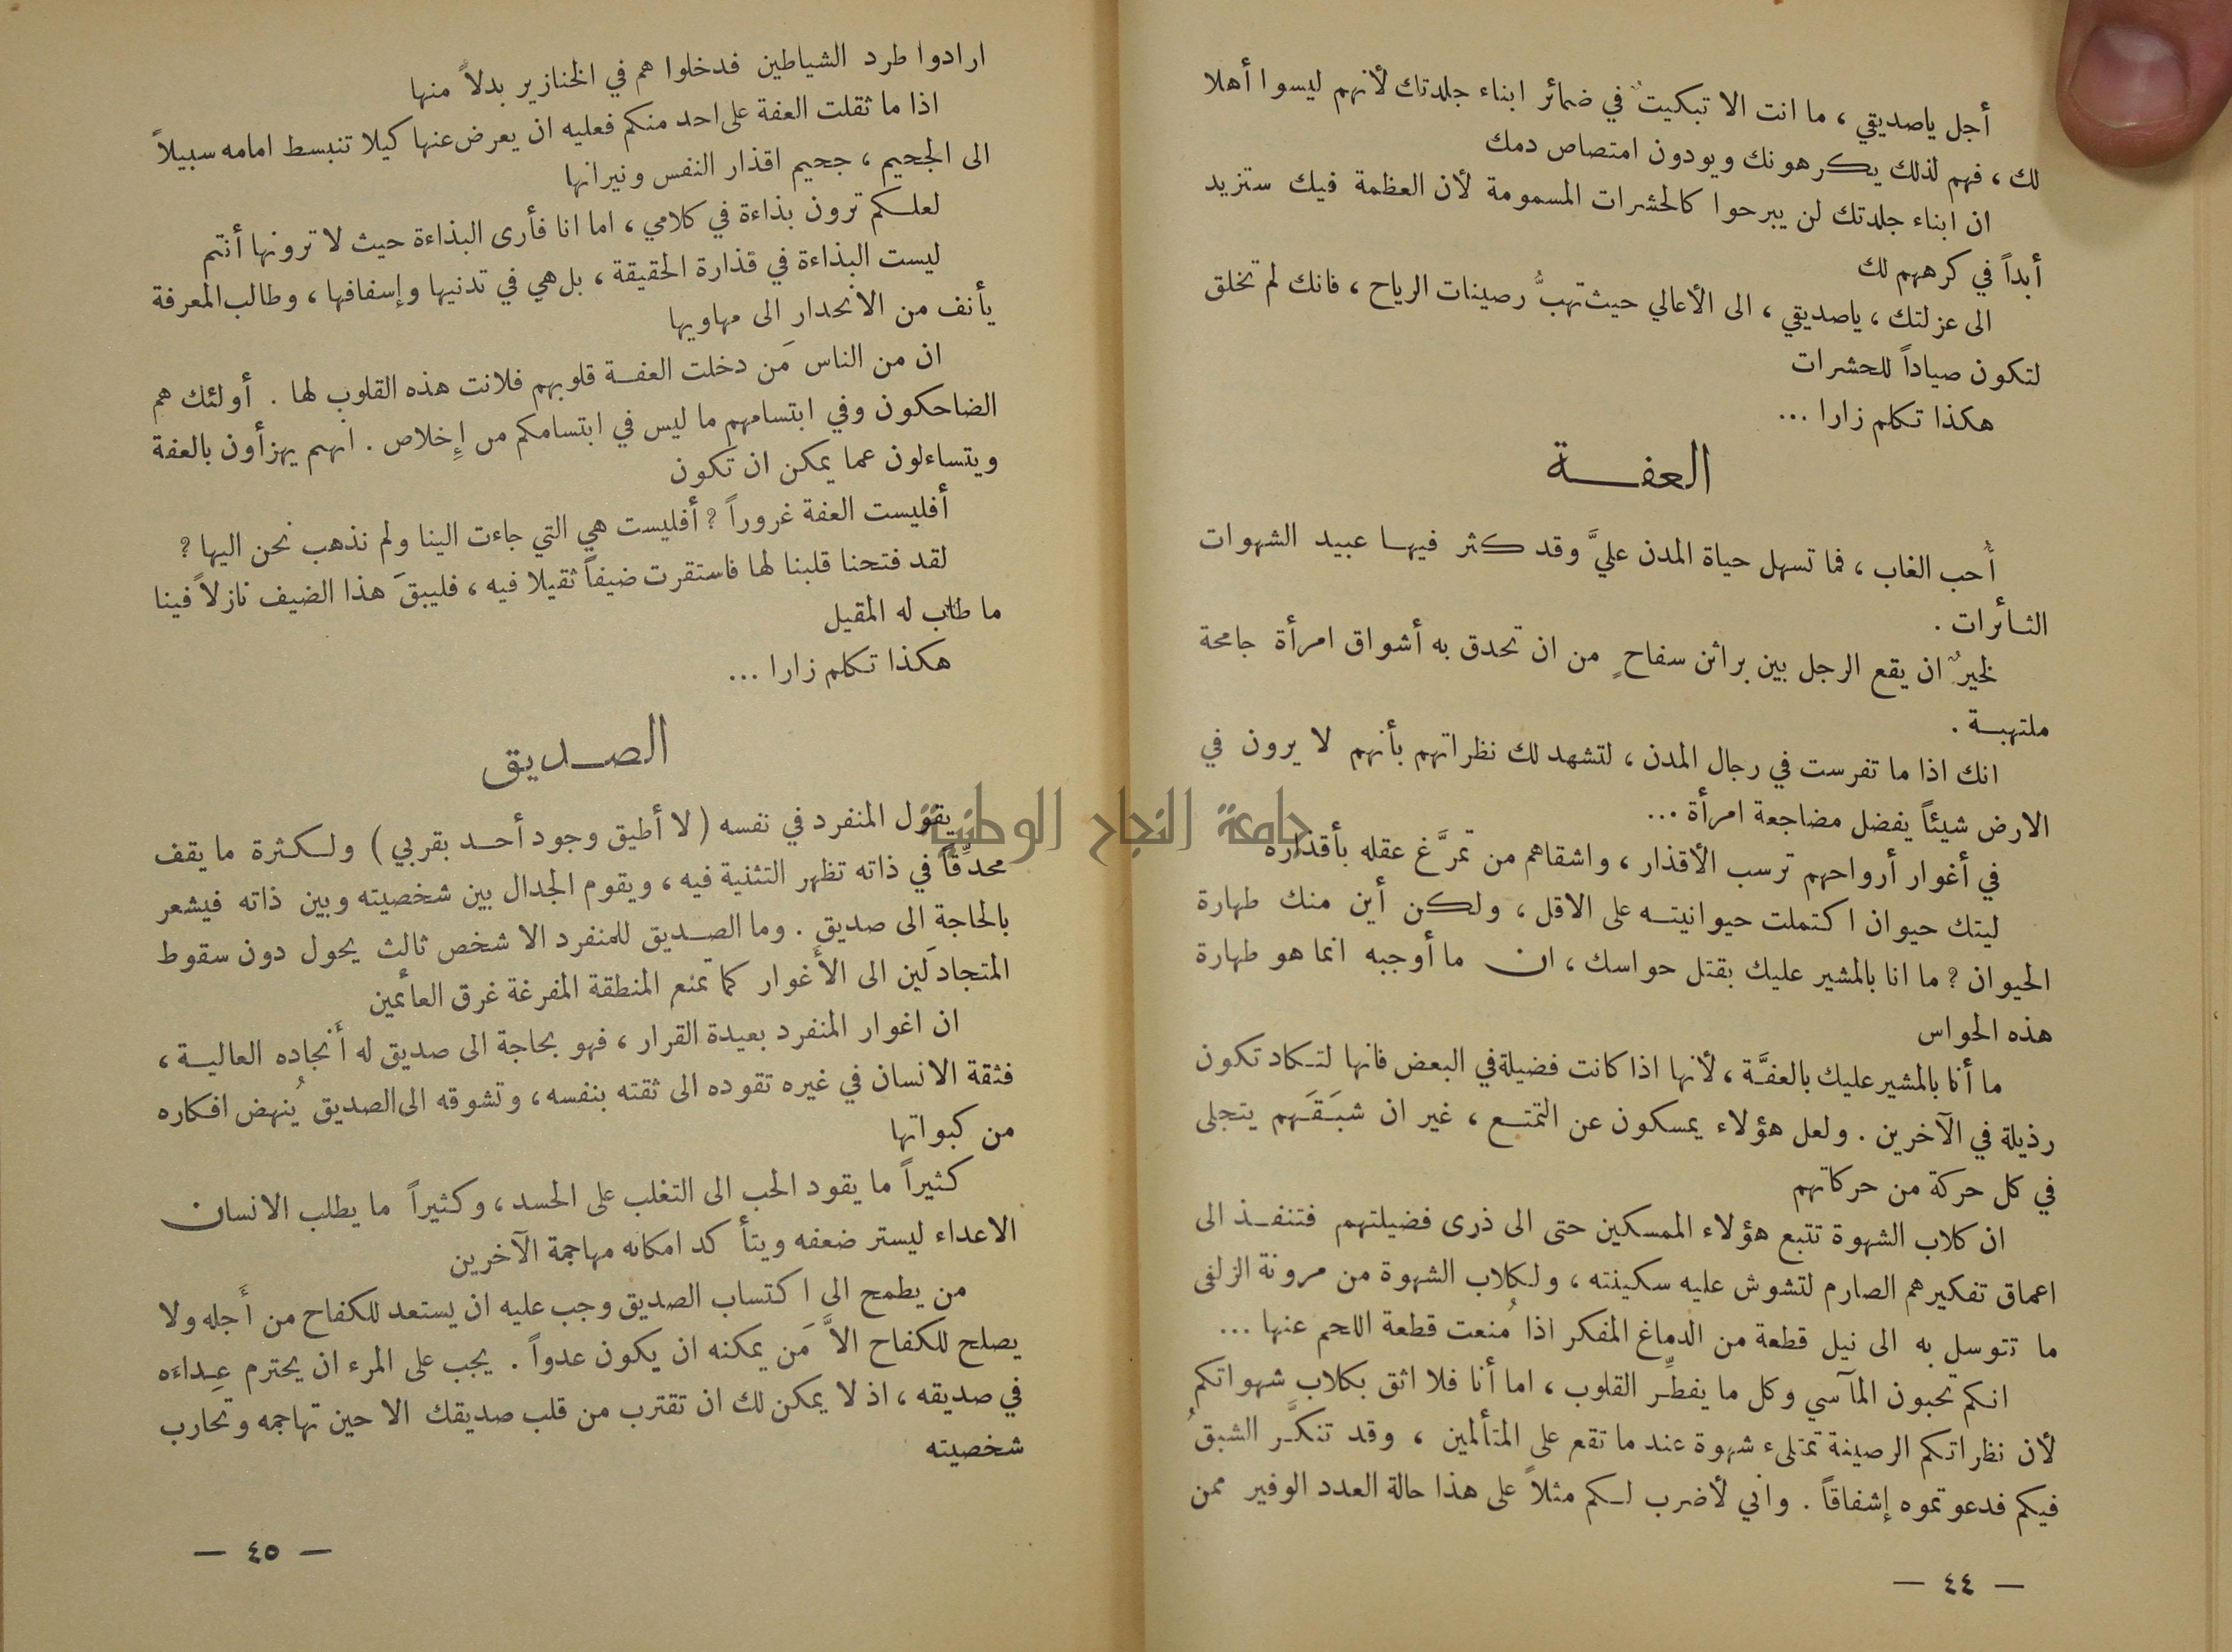 أجل ياصديقي ، ما انت الا تبكيتٌ في ضمائر ابناء جلدتك لأنهم ليسوا أهلا
لك ، فهم لذلك يكرهونك ويودون امتصاص دمك
ان ابناء جلدتك لن يبرحوا كالحشرات المسمومة لأن العظمة فيك ستزيد
أبداً في كرههم لك
الى عزلتك ، ياصديقي ، الى الأعالي حيث تهبُّ رصينات الرياح ، فانك لم تخلق
لتكون صياداً للحشرات
هكذا تكلم زارا ...
العفة
أحب الغاب ، فما تسهل حياة المدن عليَّ وقد كثر فيها عبيد الشهوات
الثائرات .
لخيرٌ ان يقع الرجل بين براثن سفاحٍ من ان تحدق به أشواق امرأة جامحة
ملتهبة .
انك اذا ما تفرست في رجال المدن ، لتشهد لك نظراتهم بأنهم لا يرون في
الارض شيئاً يفضل مضاجعة امرأة ...
في أغوار أرواحهم ترسب الأقذار ، واشقاهم من تمرَّغ عقله بأقذاره
ليتك حيوان اكتملت حيوانيته على الاقل ، ولكن أين منك طهارة
الحيوان ? ما انا بالمشير عليك بقتل حواسك ، ان ما أوجبه انما هو طهارة
هذه الحواس
ما أنا بالمشير عليك بالعفَّة ، لأنها اذا كانت فضيلة في البعض فانها لتكاد تكون
رذيلة في الآخرين . ولعل هؤلاء يمسكون عن التمتع ، غير ان شبَقَهم يتجلى
في كل حركة من حركاتهم
ان كلاب الشهوة تتبع هؤلاء الممسكين حتى الى ذرى فضيلتهم فتنفذ الى
اعماق تفكيرهم الصارم لتشوش عليه سكينته ، ولكلاب الشهوة من مرونة الزلفى
ما تتوسل به الى نيل قطعة من الدماغ المفكر اذا مُنعت قطعة اللحم عنها ...
انكم تحبون المآسي وكل ما يفطِّر القلوب ، اما أنا فلا اثق بكلاب شهواتكم
لأن نظراتكم الرصينة تمتلىء شهوة عند ما تقع على المتألمين ، وقد تنكَّر الشبقُ
فيكم فدعوتموه إشفاقاً . واني لأضرب لكم مثلاً على هذا حالة العدد الوفير ممن
— ٤٤ —
ارادوا طرد الشياطين فدخلوا هم في الخنازير بدلاً منها
اذا ما ثقلت العفة على احد منكم فعليه ان يعرض عنها كيلا تنبسط امامه سبيلاً
الى الجحيم ، جحيم اقذار النفس ونيرانها
لعلكم ترون بذاءة في كلامي ، اما انا فأرى البذاءة حيث لا ترونها أنتم
ليست البذاءة في قذارة الحقيقة ، بل هي في تدنيها وإسفافها ، وطالب المعرفة
يأنف من الانحدار الى مهاويها
ان من الناس مَن دخلت العفة قلوبهم فلانت هذه القلوب لها . أولئك هم
الضاحكون وفي ابتسامهم ما ليس في ابتسامكم من إِخلاص . انهم يهزأون بالعفة
ويتساءلون عما يمكن ان تكون
أفليست العفة غروراً ? أفليست هي التي جاءت الينا ولم نذهب نحن اليها ?
لقد فتحنا قلبنا لها فاستقرت ضيفاً ثقيلا فيه ، فليبقَ هذا الضيف نازلاً فينا
ما طاب له المقيل
هكذا تكلم زارا ...
الصديق
يقول المنفرد في نفسه ( لا أطيق وجود أحد بقربي ) ولكثرة ما يقف
محدِّقاً في ذاته تظهر التثنية فيه ، ويقوم الجدال بين شخصيته وبين ذاته فيشعر
بالحاجة الى صديق . وما الصديق للمنفرد الا شخص ثالث يحول دون سقوط
المتجادلَين الى الأغوار كما تمنع المنطقة المفرغة غرق العائمين
ان اغوار المنفرد بعيدة القرار ، فهو بحاجة الى صديق له أنجاده العالية ،
فثقة الانسان في غيره تقوده الى ثقته بنفسه ، وتشوقه الى الصديق يُنهض افكاره
من كبواتها
كثيراً ما يقود الحب الى التغلب على الحسد ، وكثيراً ما يطلب الانسان
الاعداء ليستر ضعفه ويتأكد امكانه مهاجمة الآخرين
من يطمح الى اكتساب الصديق وجب عليه ان يستعد للكفاح من أجله ولا
يصلح للكفاح الاَّ مَن يمكنه ان يكون عدواً . يجب على المرء ان يحترم عِداءَه
في صديقه ، اذ لا يمكن لك ان تقترب من قلب صديقك الا حين تهاجمه وتحارب
شخصيته
— ٤٥ —
جامعة النجاح الوطنية